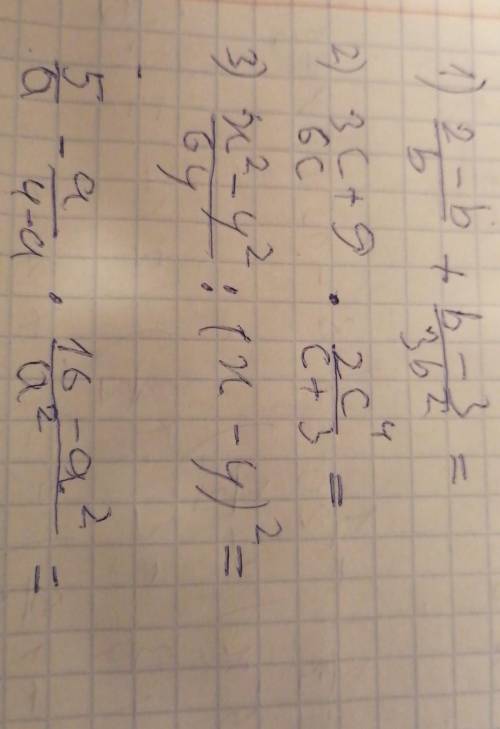 1) (2-b)/b + (b-3)/(3b²) =
2) (3c+9)/(6c) · (2c⁴)/(c+3) =
3) (x²-y²)/(6y) : (x-y)² =
5/a - a/(4-a) · (16-a²)/a² =